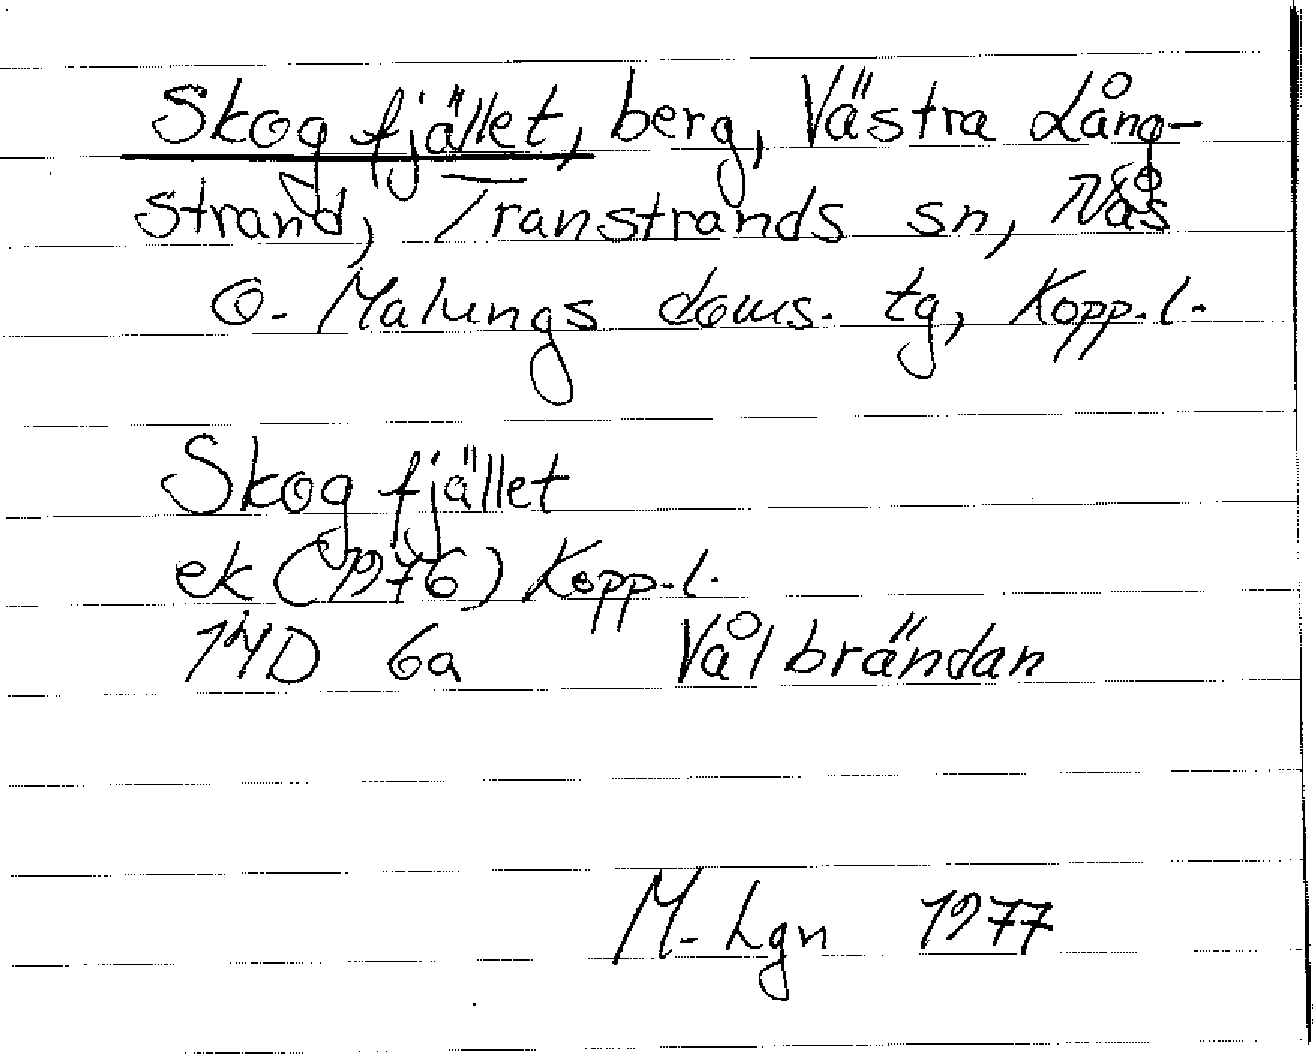 Skogfjället, berg, Västra Lång-
strand, Transtrands sn, Nås
o. Malungs doms. tg, Kopp. l.
Skogfjället
ek (1976) Kopp. l.
14D 6a Vålbrändan
M. Lgn 1977